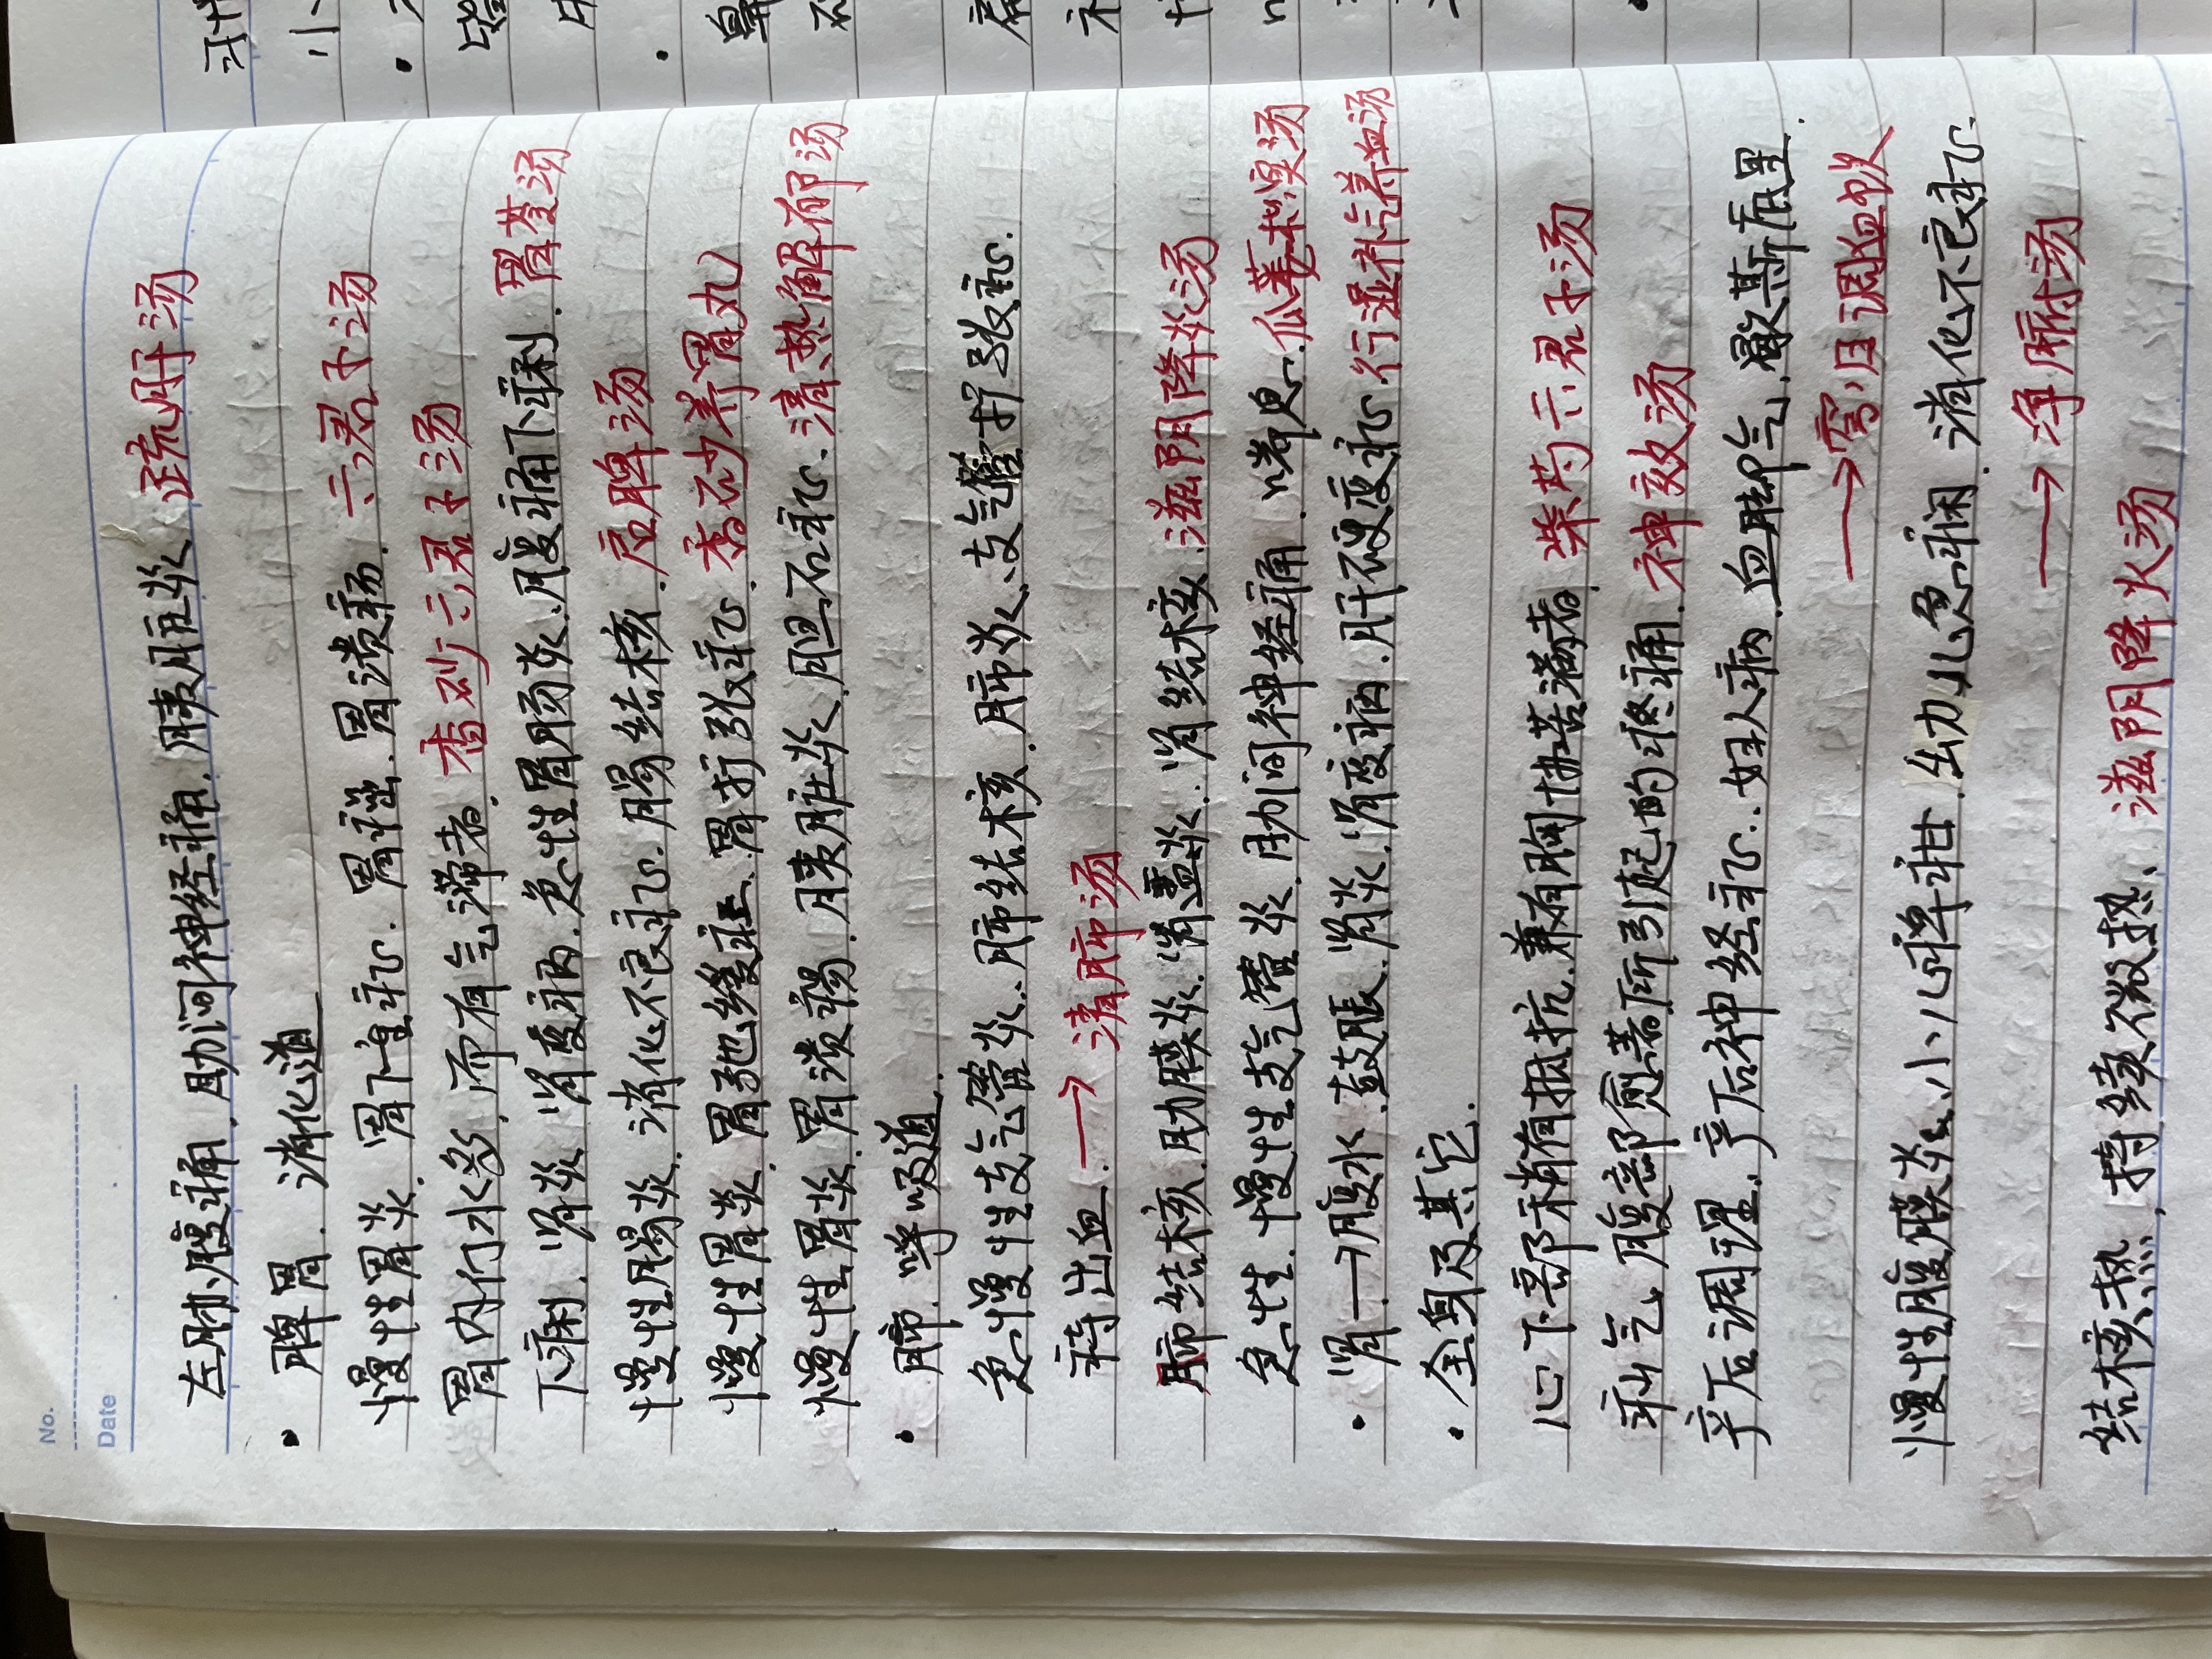 No.
Date
左肺、腹痛、肋间神经痛、胰脏炎 延胡汤
• 脾胃、消化道
慢性胃炎、胃下垂症、胃癌、胃溃疡、六君子汤
胃内门水多,而有气滞者、香砂六君子汤
下痢、肾炎、肾变病、急性胃肠炎、腹痛下痢、胃苓汤
慢性肠炎、消化不良症、肠结核、启脾汤
慢性胃炎、胃弛缓症、胃扩张症、香砂养胃丸
慢性胃炎、胃溃疡、胰脏炎、胆石症、清热解郁汤
• 肺、呼吸道、
急慢性支气管炎、肺结核、肺炎、支气管扩张症、
持出血、→ 清肺汤
肺结核、肋膜炎、肾盂炎、肾结核、滋阴降火汤
急性、慢性支气管炎、肋间神经痛、喘息、瓜蒌枳实汤
• 肾→腹水、鼓胀、肾炎、肾变病、肝硬变症、行湿补气养血汤
• 全身及其它、
心下部稍有抵抗,兼有胸胁苦满者、柴芍六君子汤
疝气、腹部瘀著所引起的疼痛、神效汤
产后调理、产后神经症、妇人病、血脚气、歇斯底里、
→ 芎归调血饮
慢性腹膜炎、小儿脾疳、幼儿急痫、消化不良症、
→ 净腑汤
结核热,持续微热、滋阴降火汤